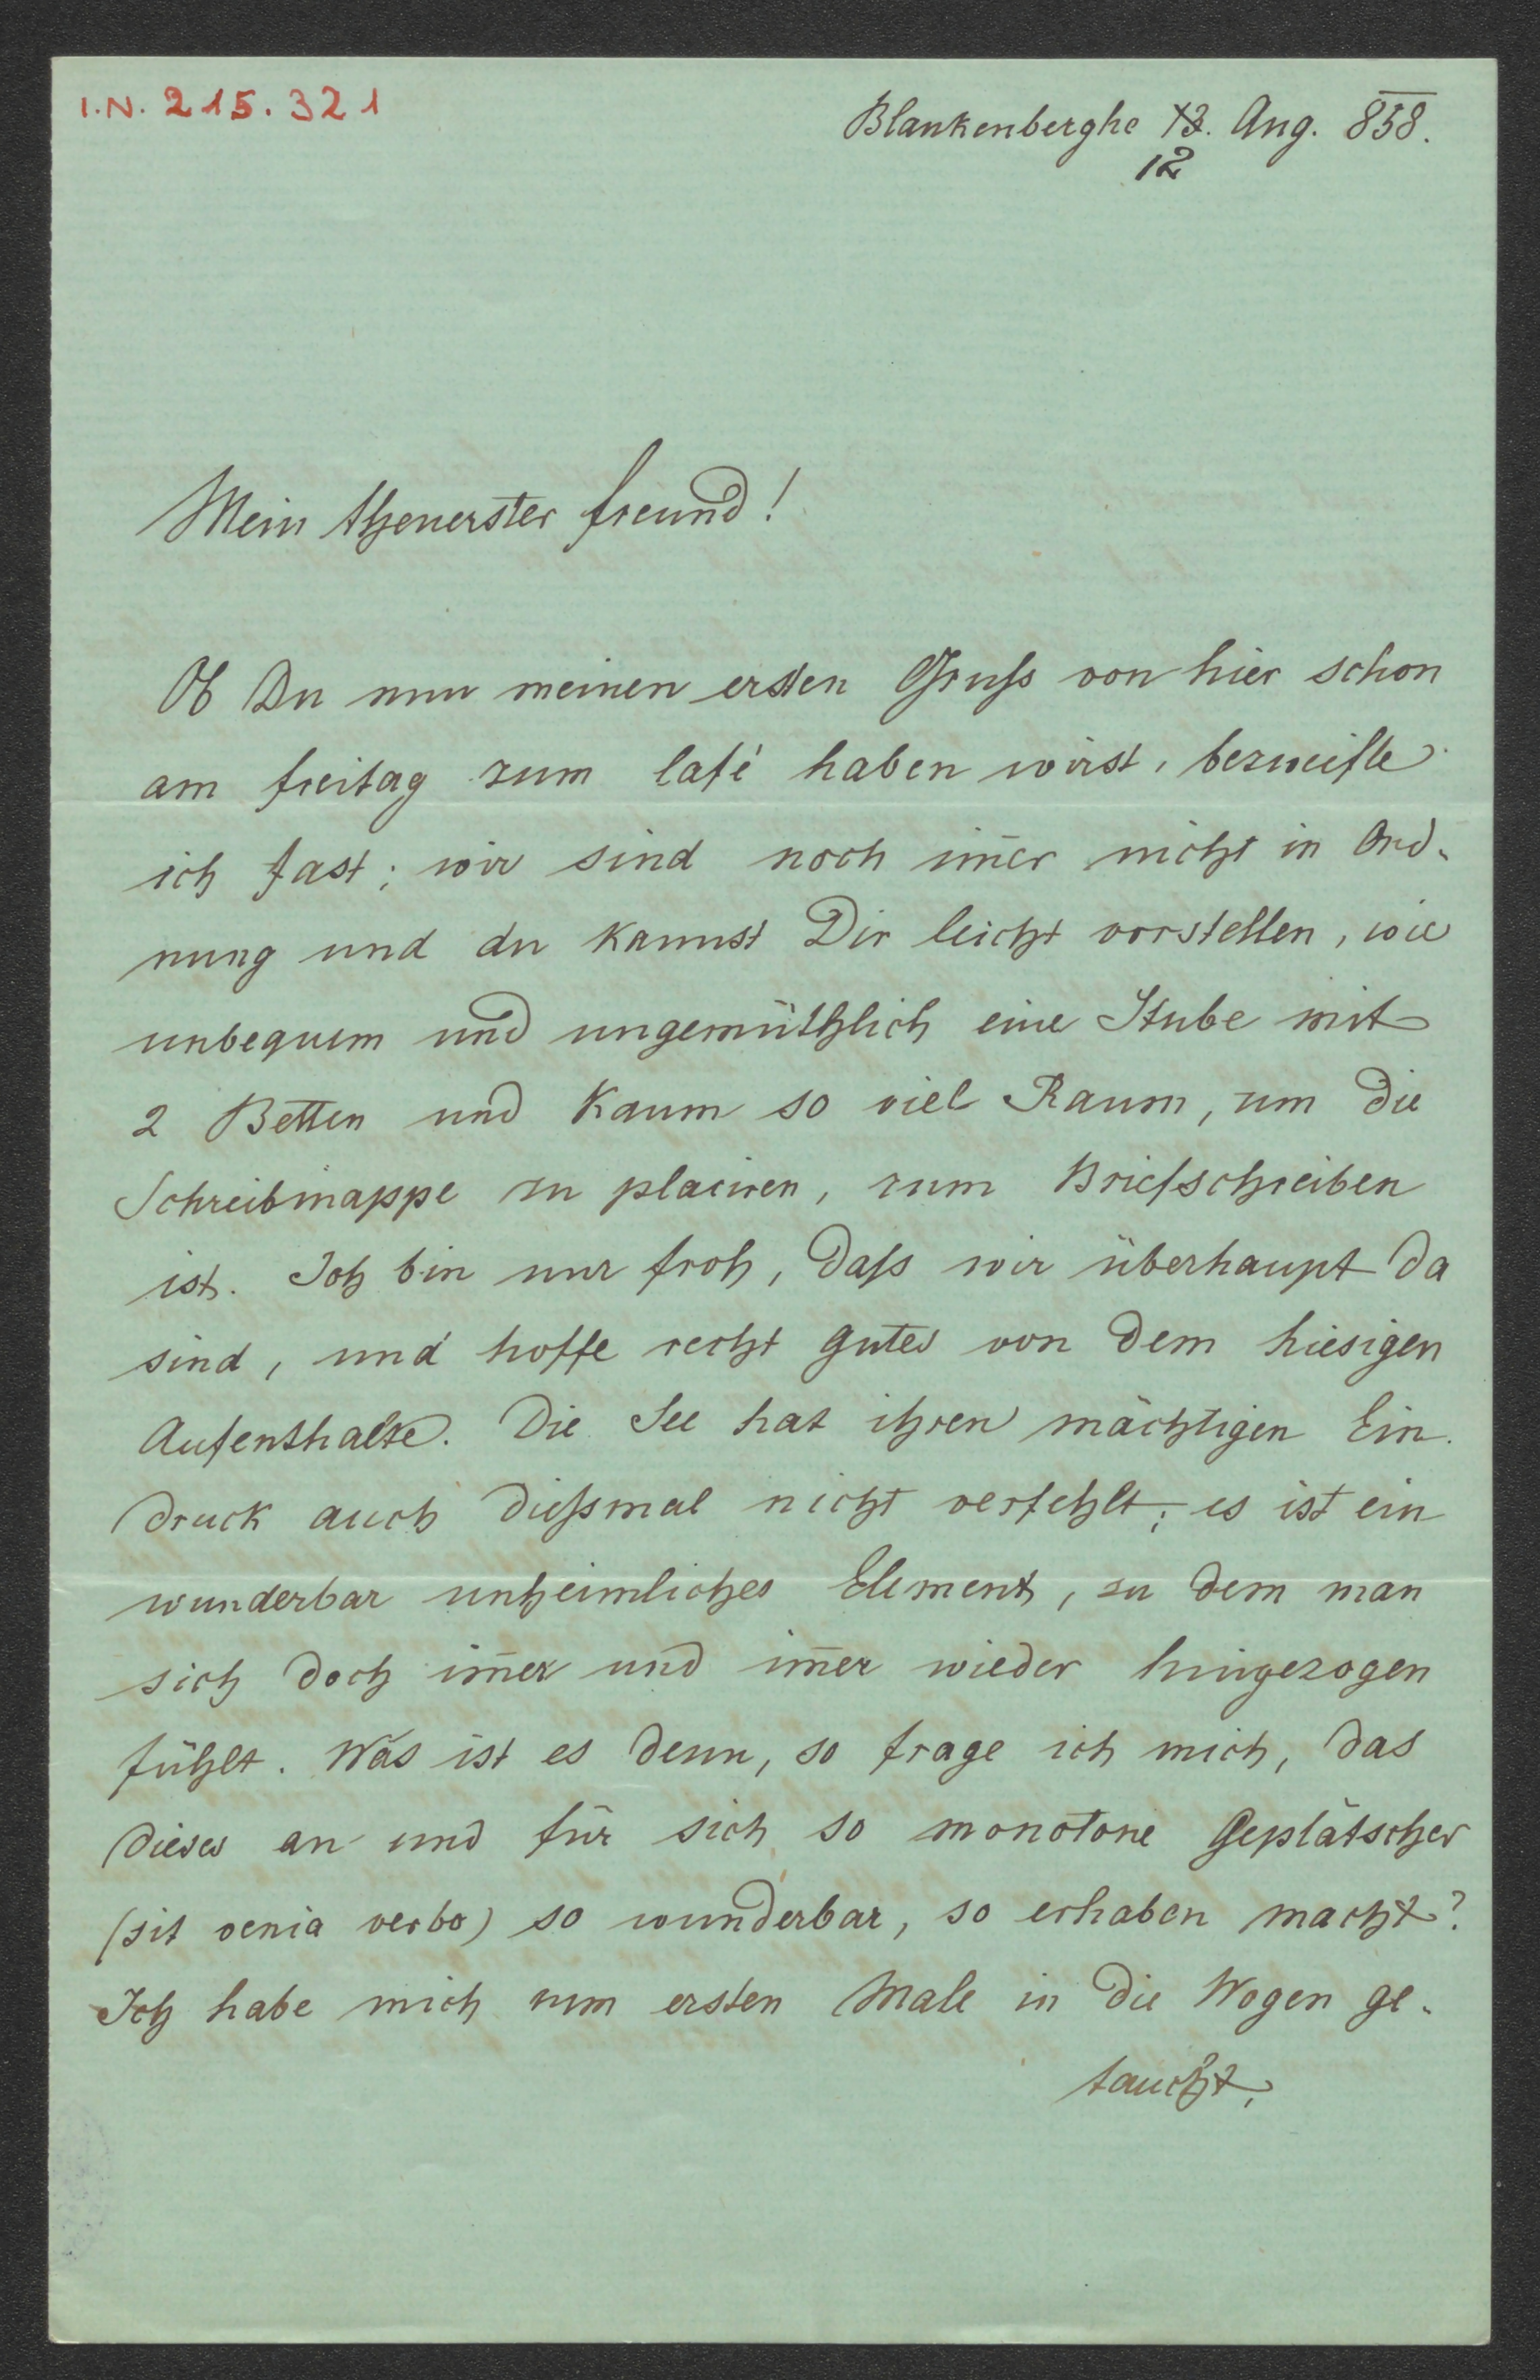 I.N. 215.321
Blankenberghe 13. Aug. 858.
12
Mein theuerster Freund!
Ob Du nun meinen ersten Gruſs von hier schon
am Freitag zum Café haben wirst, bezweifle
ich fast; wir sind noch im̄er nicht in Ord-
nung und du kannst Dir leicht vorstellen, wie
unbequem und ungemüthlich eine Stube mit
2 Betten und kaum so viel Raum, um die
Schreibmappe zu placiren, zum Briefschreiben
ist. Ich bin nur froh, daſs wir überhaupt da
sind, und hoffe recht gutes von dem hiesigen
Aufenthalte. Die See hat ihren mächtigen Ein-
druck auch dieſsmal nicht verfehlt; es ist ein
wunderbar unheimliches Element, zu dem man
sich doch im̄er und im̄er wieder hingezogen
fühlt. Was ist es denn, so frage ich mich, das
dieses an und für sich so monotone Geplätscher
(sit venia verbo) so wunderbar, so erhaben macht?
Ich habe mich zum ersten Male in die Wogen ge-
taucht,